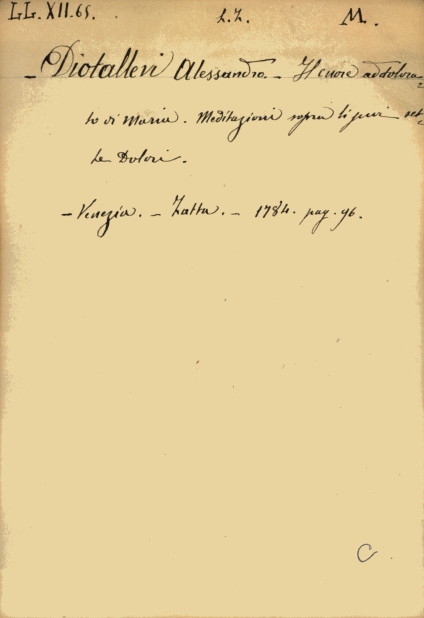 LL. XII. 65. L. Z. M.
– Diotallevi Alessandro. – Il cuore addolora-
to di Maria. Meditazioni sopra li suoi set-
te Dolori.
– Venezia. – Zatta. – 1784. pag. 96.
C